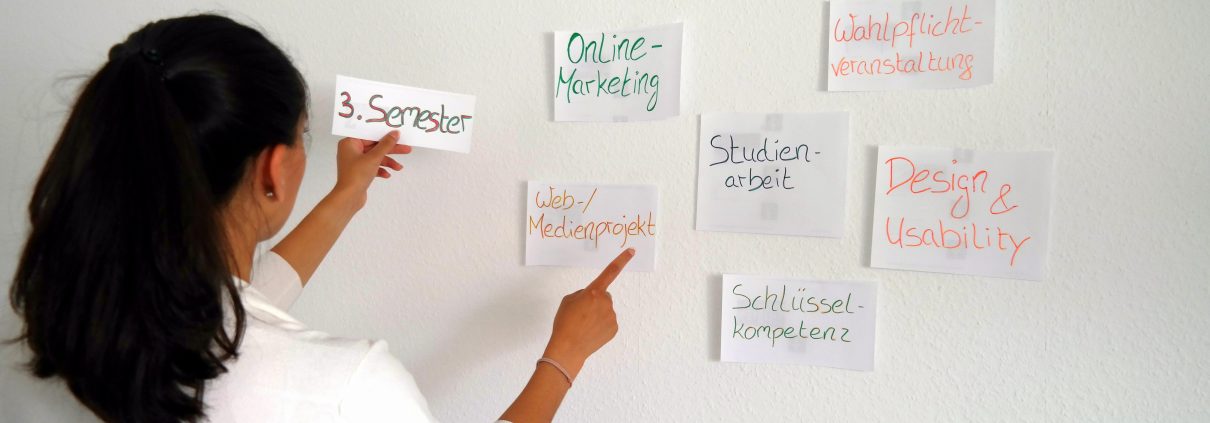 3. Semester
Online-
Marketing
Wahlpflicht-
veranstaltung
Studien-
arbeit
Design &
Usability
Web-/
Medienprojekt
Schlüssel-
kompetenz